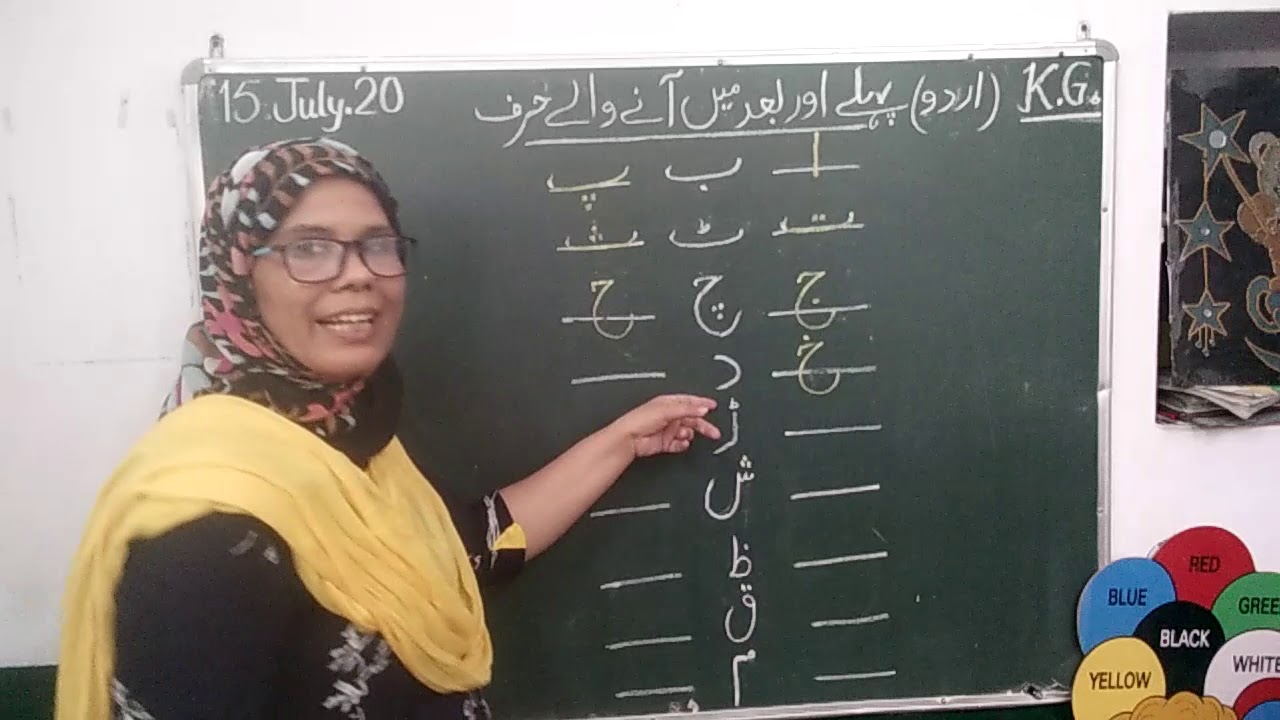 15.July.20 پہلے اور بعد میں آنے والے حرف (اردو) K.G.
ا ب پ
ت ٹ ث
ج چ ح
خ د
ڑ
ش
ظ
ق
م
RED
BLUE
GREE
BLACK
WHITE
YELLOW